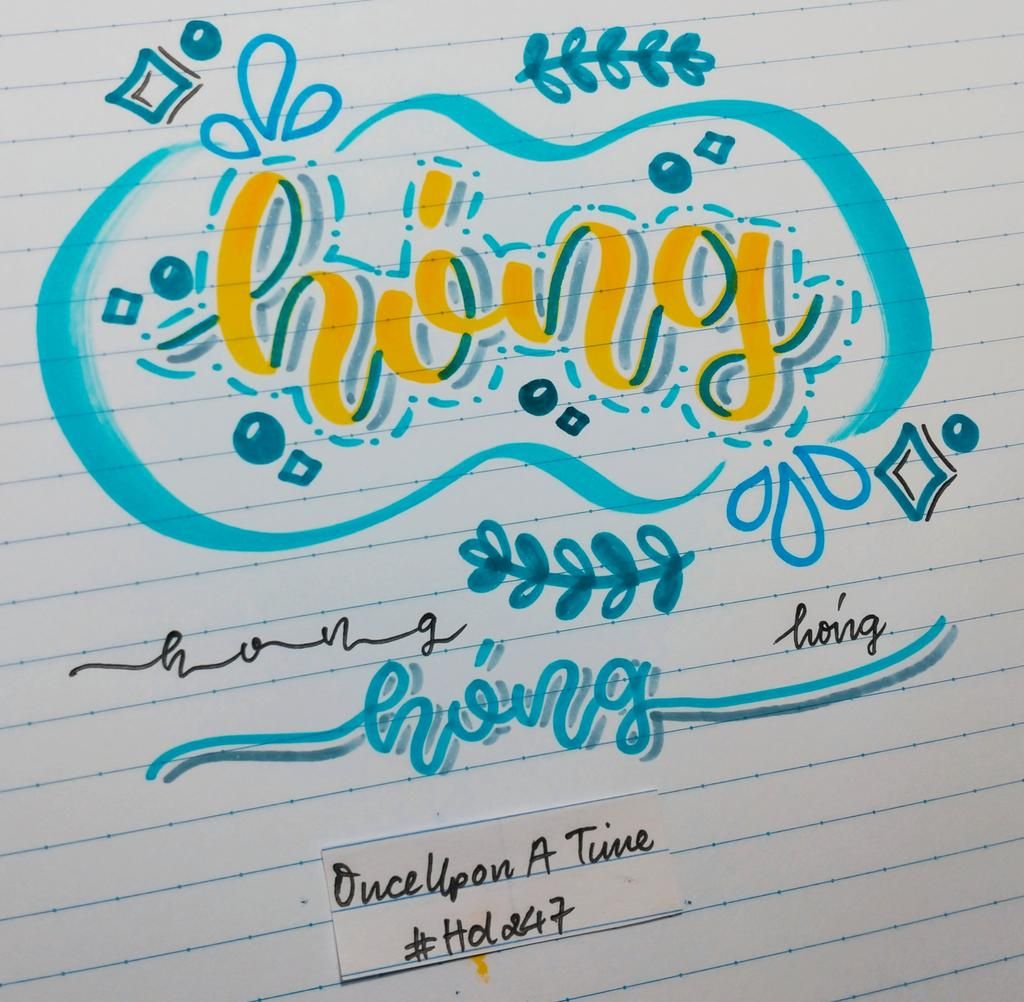 hóng
hong
hóng
hóng
OnceUpon A Time
#Hd247